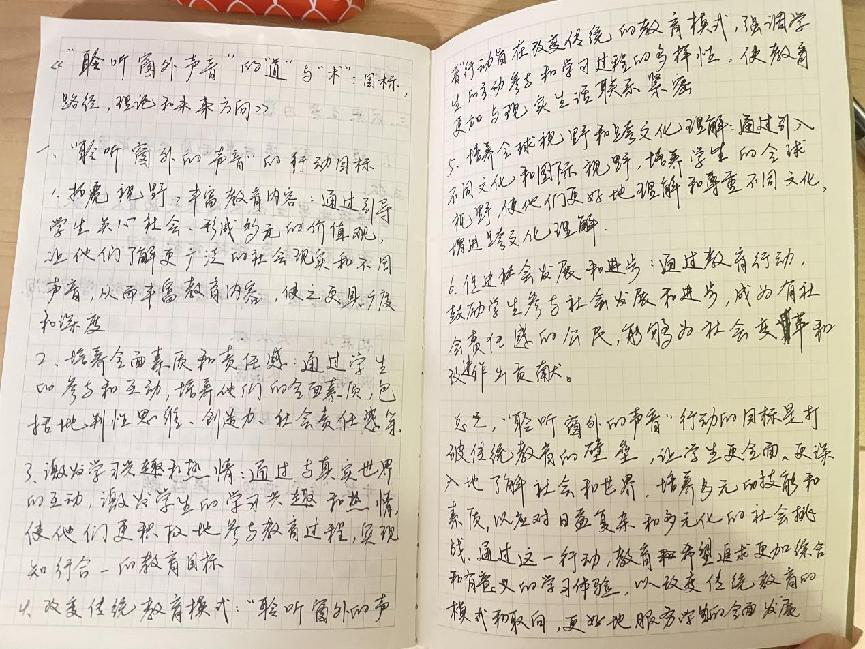 《"聆听窗外声音"的"道"与"术":目标,
路径,理论和未来方向》
一、"聆听窗外的声音"的行动目标
1.拓宽视野,丰富教育内容:通过引导
学生关心社会、形成多元的价值观,
让他们了解更广泛的社会现实和不同
声音,从而丰富教育内容,使之更具广度
和深度
2、培养全面素质和责任感:通过学生
的参与和互动,培养他们的全面素质,包
括批判性思维、创造力、社会责任感等.
3、激发学习兴趣和热情:通过与真实世界
的互动,激发学生的学习兴趣和热情,
使他们更积极地参与教育过程,实现
知行合一的教育目标
4、改变传统教育模式:"聆听窗外的声
音"行动旨在改变传统的教育模式,强调学
生的主动参与和学习过程的多样性,使教育
更加与现实生活联系紧密
5.培养全球视野和跨文化理解:通过引入
不同文化和国际视野,培养学生的全球
视野,使他们更好地理解和尊重不同文化,
增进跨文化理解.
6.促进社会发展和进步:通过教育行动,
鼓励学生参与社会发展和进步,成为有社
会责任感的公民,能够为社会变革和
改进作出贡献。
总之,"聆听窗外的声音"行动的目标是打
破传统教育的壁垒,让学生更全面、更深
入地了解社会和世界,培养多元的技能和
素质,以应对日益复杂和多元化的社会挑
战.通过这一行动,教育希望追求更加综合
和有意义的学习体验,以改变传统教育的
模式和取向,更好地服务学生的全面发展